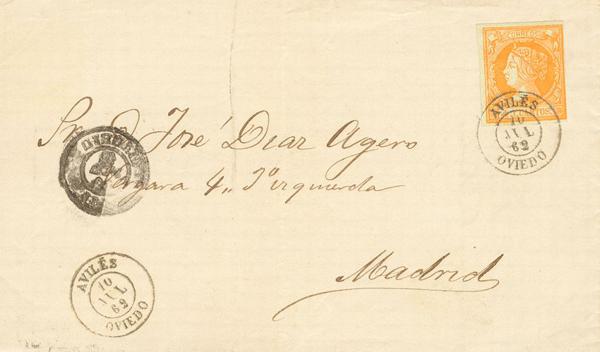 CORREOS
AVILÉS
10
JUL
62
OVIEDO
Sr. D. José Diaz Agero
4,, 3º izquierda
Madrid
AVILÉS
10
JUL
62
OVIEDO